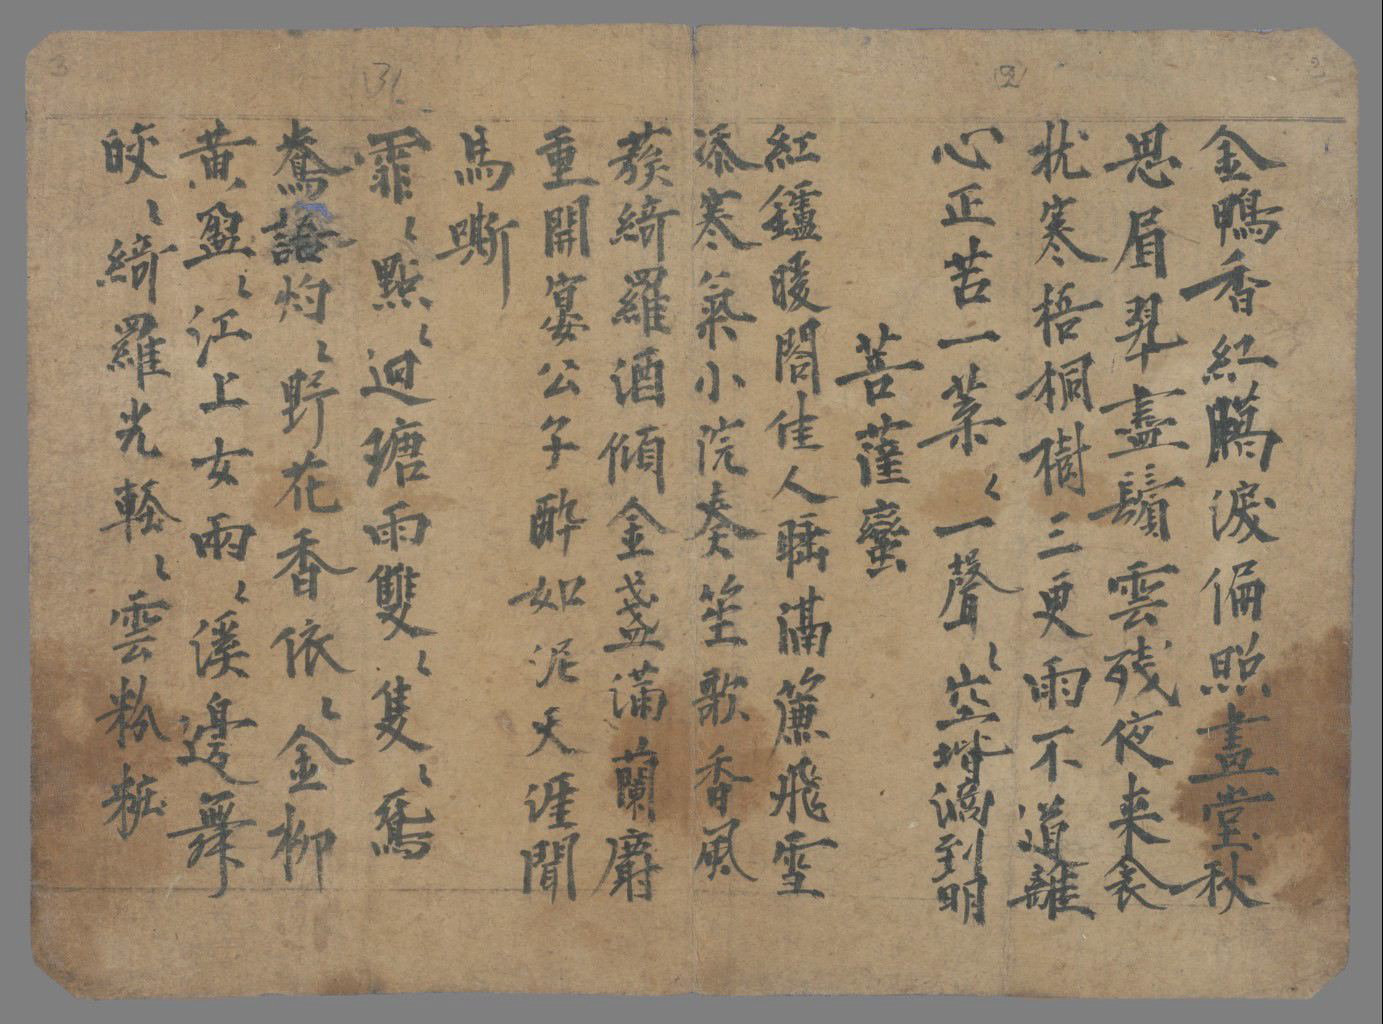 金鴨香紅臈淚偏照畫堂秋
思眉翠盡鬢雲残夜来衾
枕寒梧桐樹三更雨不道離
心正苦一葉〻一聲〻空堦滴到明
菩薩蠻
紅鑪暖閣佳人睡滿簾飛雪
添寒氣小院奏笙歌香風
蔟綺羅酒傾金盞滿蘭麝
重開宴公子醉如泥天涯聞
馬嘶
霏〻點〻迴塘雨雙〻隻〻鴛
鴦語灼〻野花香依〻金柳
黃盈〻江上女兩〻溪邊舞
皎〻綺羅光輕〻雲粉粧